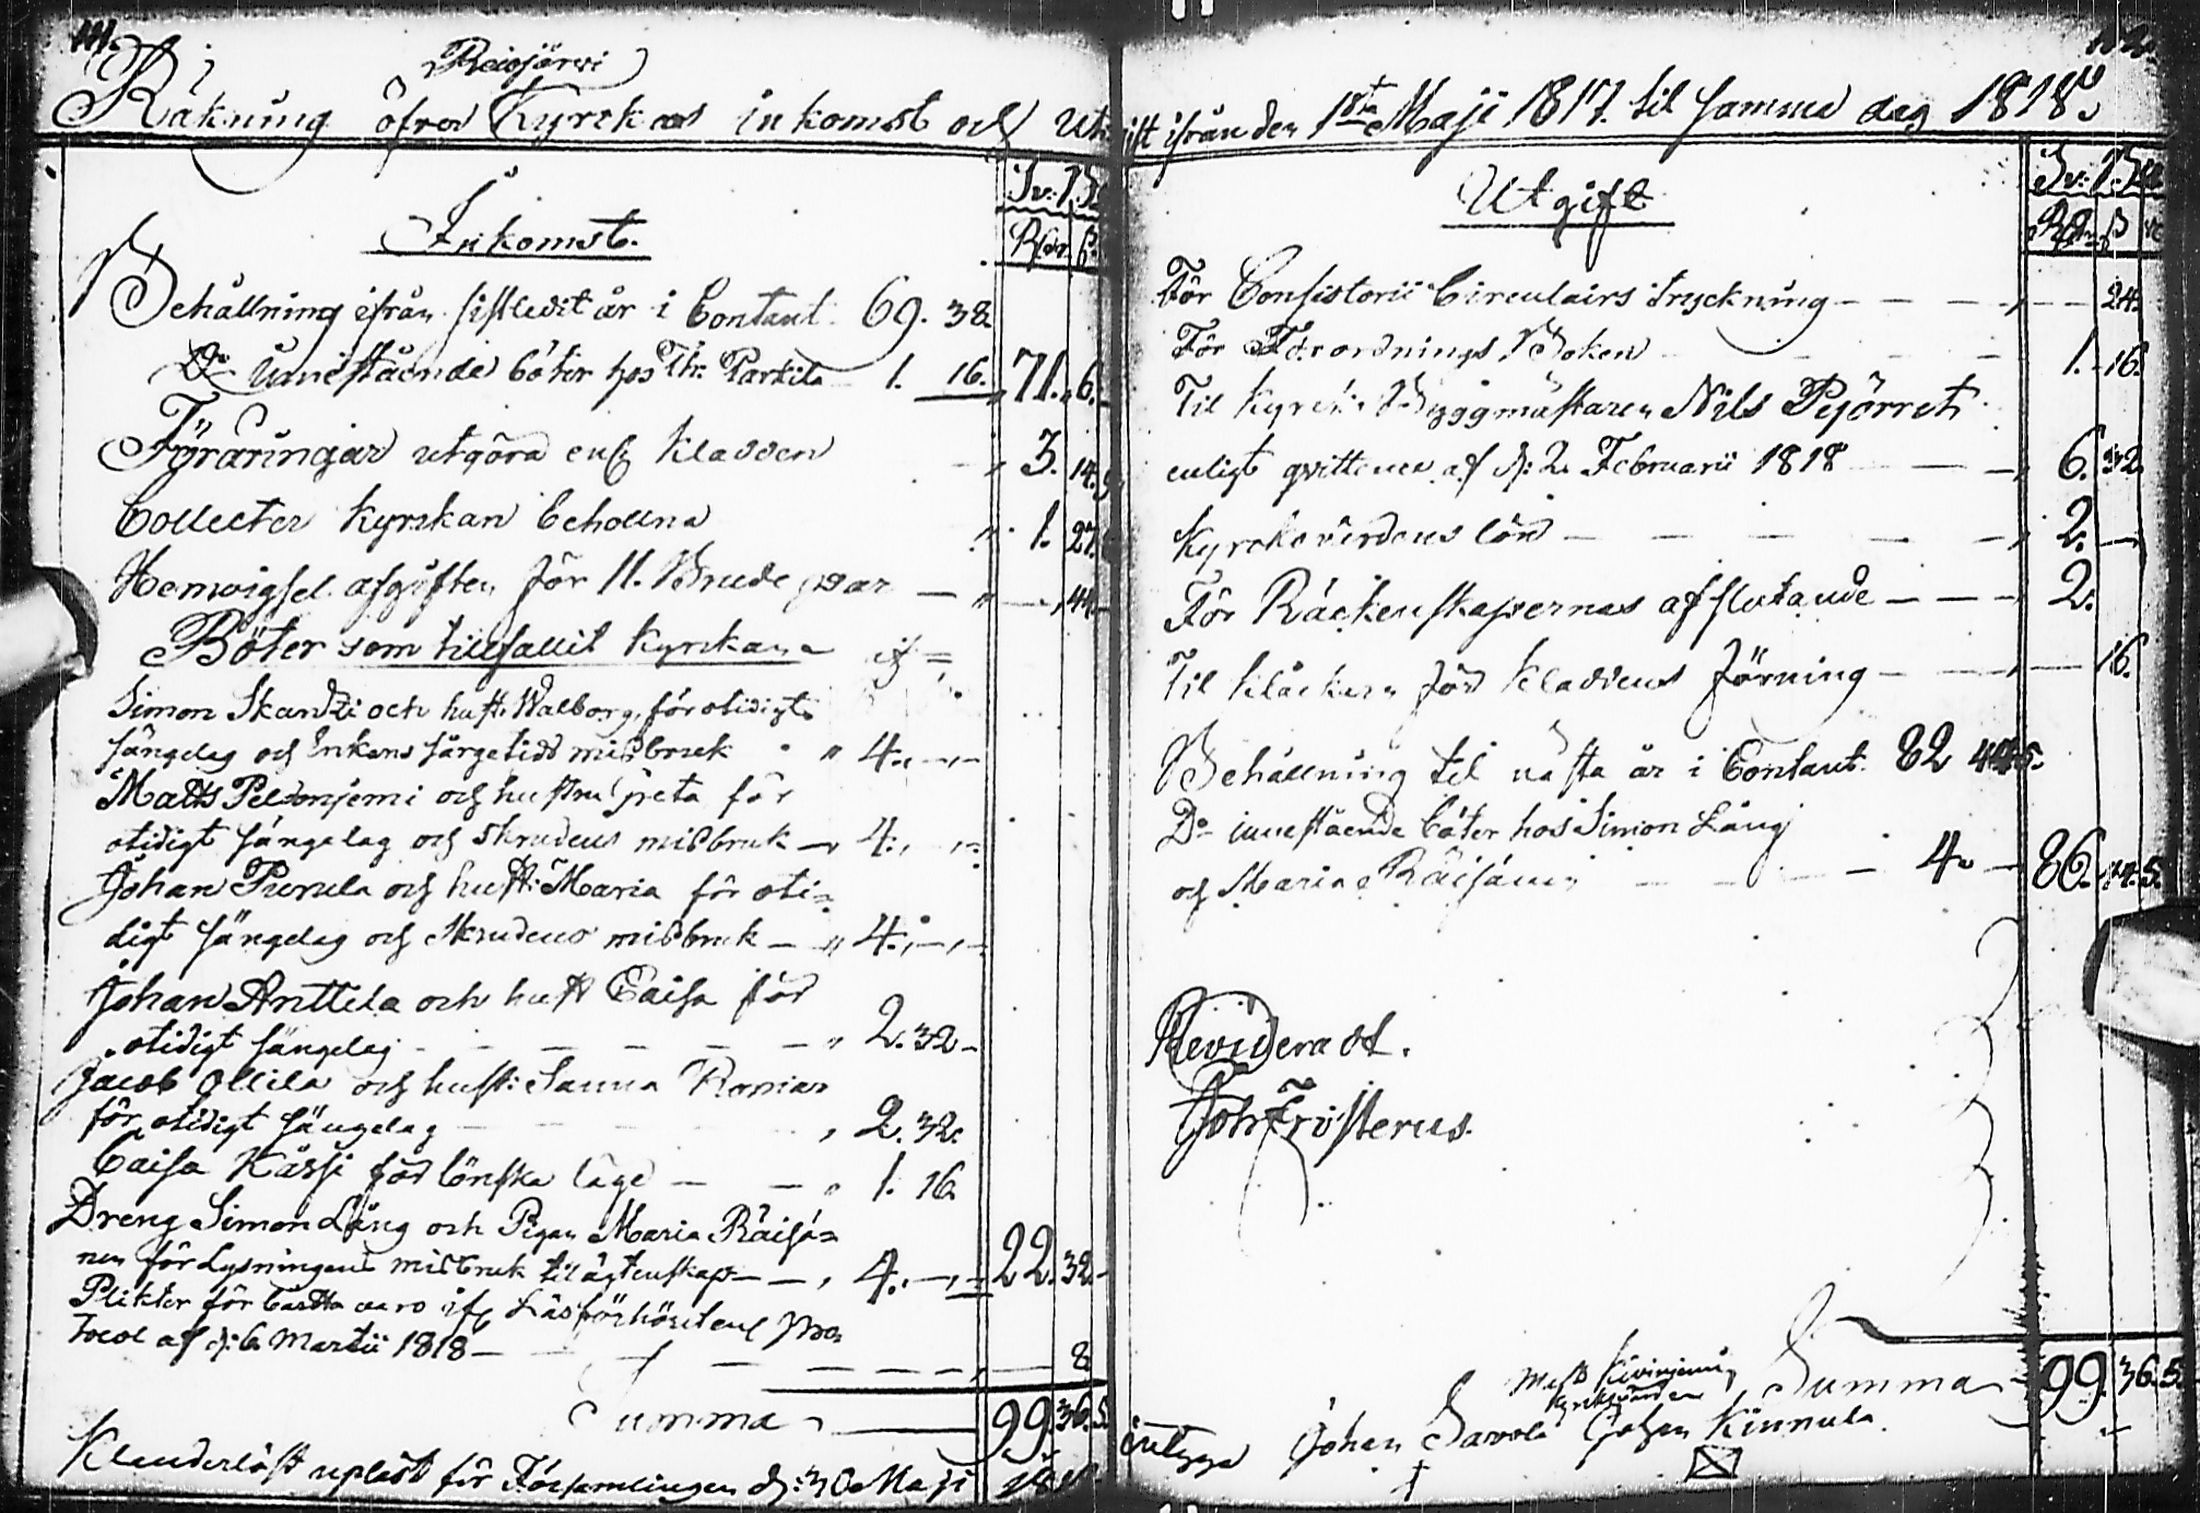 111.
Reisjärvi
Räkning öfver Kyrckans inkomst och Utgift ifrån den 1sta Maji 1817. til samma dag 1818.
Inkomst.
Sv: B
Rdr ß
Behållning ifrån sistledit år i Contant 69. 38.
Do innestående böter hos Thr. Parkila 1. 16. 71. 6.
Föräringar utgöra enl: Kladden 3. 14. 5
Collecter Kyrckan behollna 1. 27.
Hemvigsel afgiften för 11. Brude par — 44.
Böter som tillfallit Kyrckan
Simon Skantzi och hust. Walborg, för otidigt
sängelag och Enkans särgetids misbruk 4. — —
Matts Peltoniemi och hustru Greta för
otidigt sängelag och Skrudens misbruk 4. — —
Johan Purula och hust: Maria för oti-
digt sängelag och Skrudens misbruk 4. — —
Johan Anttila och hust Caisa för
otidigt sängelag 2. 32
Jacob Ollila och hust: Sanna
för otidigt sängelag 2. 32.
Caisa Kässi för lönska läge 1. 16.
Dreng Simon Lång och Pigan Maria Räisä-
nen för Lysningens misbruk til ägtenskap 4. — — 22. 32.
Plikter för Läsförhörens Pro-
tocol af d: 6 Martii 1818 8
Summa 99. 36. 5.
Klanderlöst upläst för Församlingen d: 30 Maji 1818
Utgift
Sv: B
Rdr ß rs
För Consistorii Circulairs tryckning — 24.
För Förordnings Boken 1. 16.
Til Kyrck. Byggmästaren Nils Pyörret
enligt qvittence af d: 2 Februarii 1818 6. 32.
Kyrckovärdens lön 2. —
För Räckenskapernas afslutande 2.
Til Klåckarn för Kladdens förning — 16.
Behållning til nästa år i Contant. 82 44. 5.
Do innestående böter hos Simon Lång
och Maria Räisänen 4. — 86. 44. 5.
Revideradt.
Joh Frosterus.
Summa 99. 36. 5.
Matts Kiviniemi
Kyrkvärden
intyga Johan Savola Johan Kinnula.